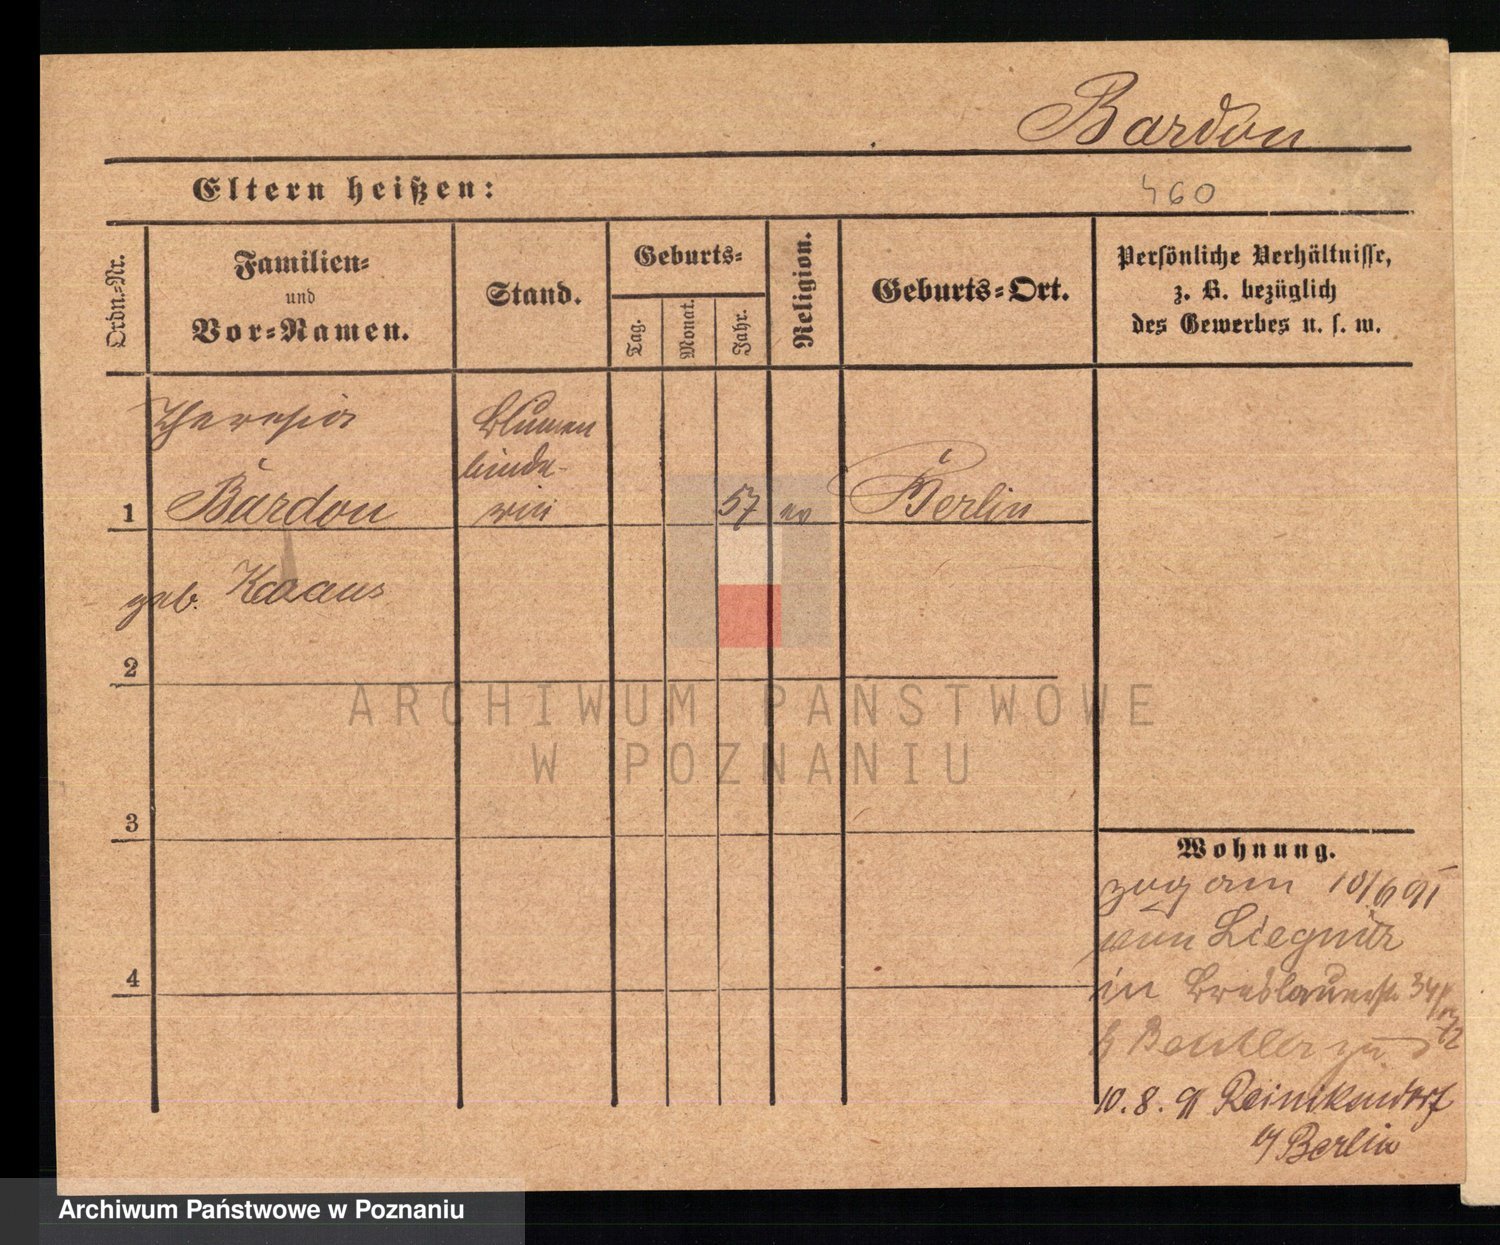 Bardon
Eltern heißen:
460
Ordn.-Nr.
Familien-
und
Vor-Namen.
Stand.
Geburts-
Tag.
Monat.
Jahr.
Religion.
Geburts-Ort.
Persönliche Verhältnisse,
z. B. bezüglich
des Gewerbes u. s. w.
Theresia
Blumen
binde-
1 Bardon rin 57 ev Berlin
geb. Kaaus
2
ARCHIWUM PAŃSTWOWE
W POZNANIU
3
Wohnung.
zug am 10/6 91
von Liegnitz
4
in Breslauerstr 34/
b Beutler zu
10. 8. 91 Reinikendorf
b/ Berlin
Archiwum Państwowe w Poznaniu